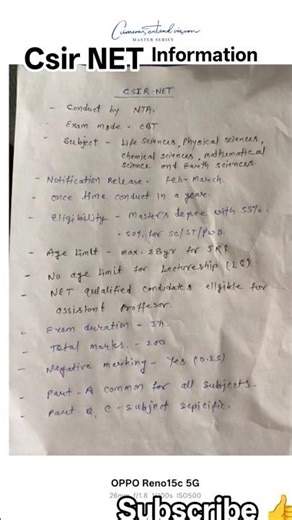 Cameras, extend vision
MASTER SERIES
Csir NET Information
CSIR-NET
- Conduct by NTA.
- Exam mode - CBT
- Subject - Life Sciences, Physical sciences,
chemical sciences, mathematical
science and Earth sciences
- Notification Release - Feb - March.
- once time conduct in a year.
- Eligibility - Master's degree with 55%.
- 50% for SC/ST/PWD.
- Age limit - max. 28yr for JRF
- No age limit for Lectureship (LS)
- NET qualified candidates eligible for
assistant proffesor.
- Exam duration - 3h
- Total marks - 200
- Negative marking - Yes (0.25)
- Part - A common for all subjects.
- Part B, C - subject sepicific.
OPPO Reno15c 5G
26mm f/1.8 ISO500
Subscribe